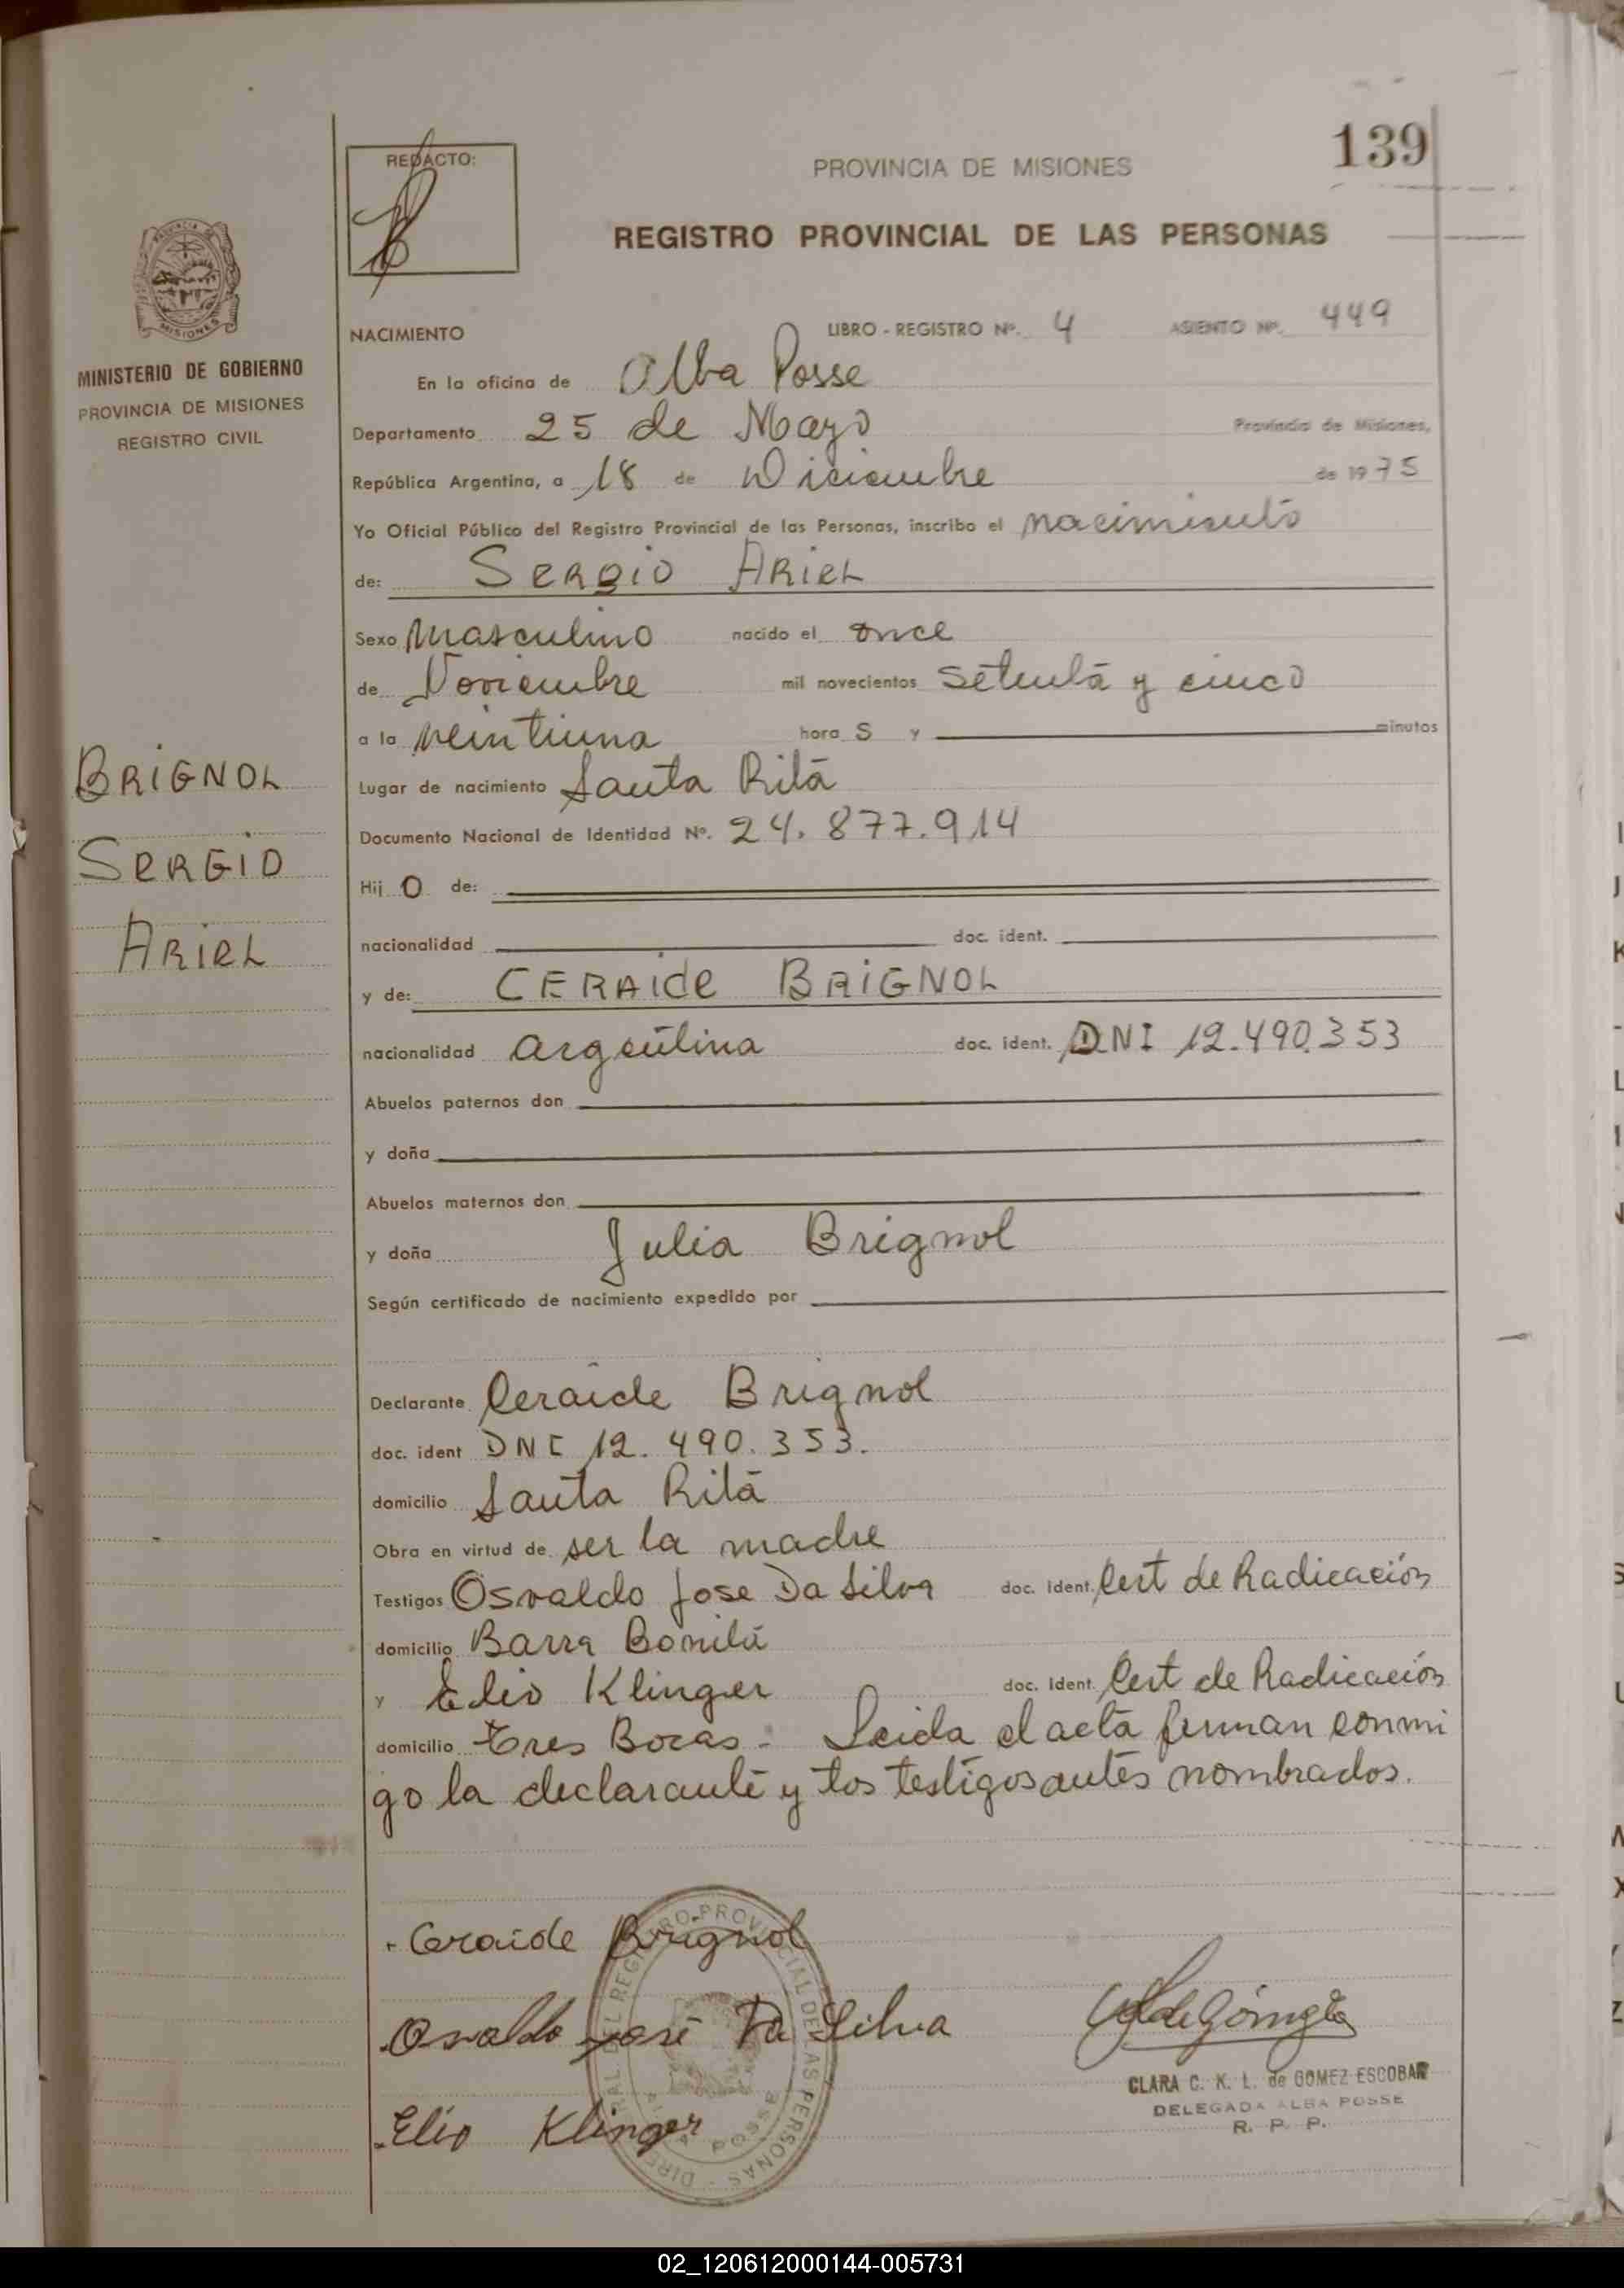 139
REDACTO:
PROVINCIA DE MISIONES
REGISTRO PROVINCIAL DE LAS PERSONAS
MINISTERIO DE GOBIERNO
PROVINCIA DE MISIONES
REGISTRO CIVIL
NACIMIENTO LIBRO - REGISTRO Nº. 4 ASIENTO Nº. 449
En la oficina de Alba Posse
Departamento 25 de Mayo Provincia de Misiones,
República Argentina, a 18 de Diciembre de 1975
Yo Oficial Público del Registro Provincial de las Personas, inscribo el nacimiento
de: SERGIO ARIEL
Sexo Masculino nacido el once
de Noviembre mil novecientos setenta y cinco
a la veintiuna hora S y minutos
Lugar de nacimiento Santa Rita
Documento Nacional de Identidad Nº. 24.877.914
BRIGNOL
SERGIO
ARIEL
Hij O de:
nacionalidad doc. ident.
y de: CERAIDE BRIGNOL
nacionalidad argentina doc. ident. DNI 12.490.353
Abuelos paternos don
y doña
Abuelos maternos don
y doña Julia Brignol
Según certificado de nacimiento expedido por
Declarante Ceraide Brignol
doc. ident DNI 12.490.353.
domicilio Santa Rita
Obra en virtud de ser la madre
Testigos Osvaldo Jose Da Silva doc. ident. Cert de Radicación
domicilio Barra Bonita
y Elio Klinger doc. ident. Cert de Radicación
domicilio Tres Bocas.- Leida el acta firman conmi
go la declarante y los testigos antes nombrados.
Ceraide Brignol
Osvaldo José Da Silva
Elio Klinger
DIRECCION GENERAL DEL REGISTRO PROVINCIAL DE LAS PERSONAS
ALBA POSSE
CLARA C. K. L. de GOMEZ ESCOBAR
DELEGADA ALBA POSSE
R. P. P.
02_120612000144-005731